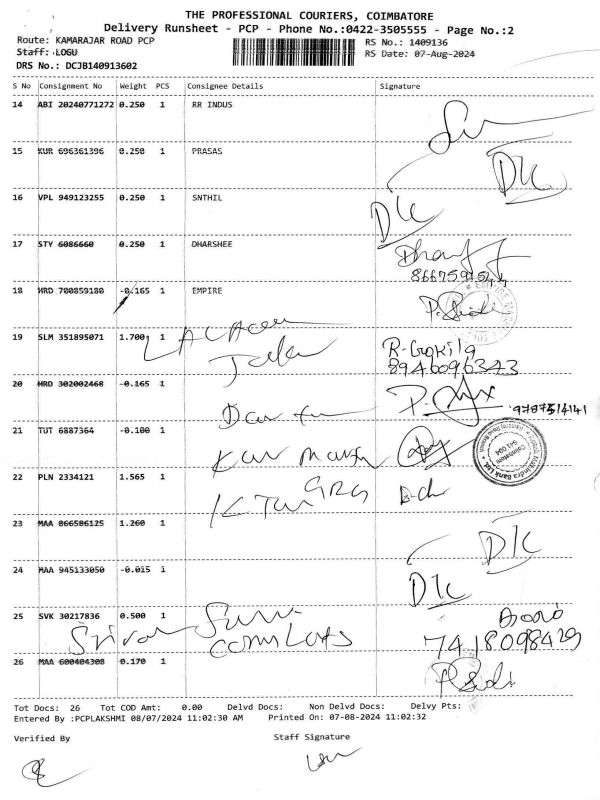 THE PROFESSIONAL COURIERS, COIMBATORE
Delivery Runsheet - PCP - Phone No.:0422-3505555 - Page No.:2
Route: KAMARAJAR ROAD PCP RS No.: 1409136
Staff: LOGU RS Date: 07-Aug-2024
DRS No.: DCJB140913602
S No Consignment No Weight PCS Consignee Details Signature
14 ABI 20240771272 0.250 1 RR INDUS
15 KUR 696361396 0.250 1 PRASAS
D/c
16 VPL 949123255 0.250 1 SNTHIL
D/c
17 STY 6086660 0.250 1 DHARSHEE
18 HRD 700859180 -0.165 1 EMPIRE
P. Sridi
19 SLM 351895071 1.700 1
R-Gokila
8946096343
20 HRD 302002468 -0.165 1
9787514141
21 TUT 6887364 -0.100 1
22 PLN 2334121 1.565 1
23 MAA 866586125 1.260 1
D/c
24 MAA 945133050 -0.015 1
D/c
25 SVK 30217836 0.500 1
7418098429
26 MAA 600404308 0.170 1
Tot Docs: 26 Tot COD Amt: 0.00 Delvd Docs: Non Delvd Docs: Delvy Pts:
Entered By :PCPLAKSHMI 08/07/2024 11:02:30 AM Printed On: 07-08-2024 11:02:32
Verified By Staff Signature